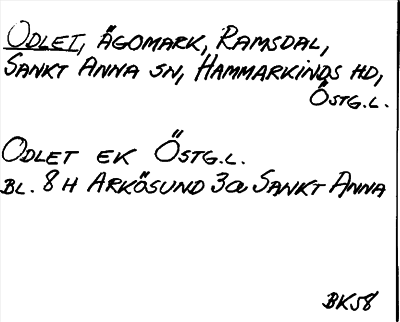 ODLET, ÄGOMARK, RAMSDAL,
SANKT ANNA SN, HAMMARKINDS HD,
ÖSTG.L.
ODLET EK ÖSTG.L.
BL. 8H ARKÖSUND 3a SANKT ANNA
BK58